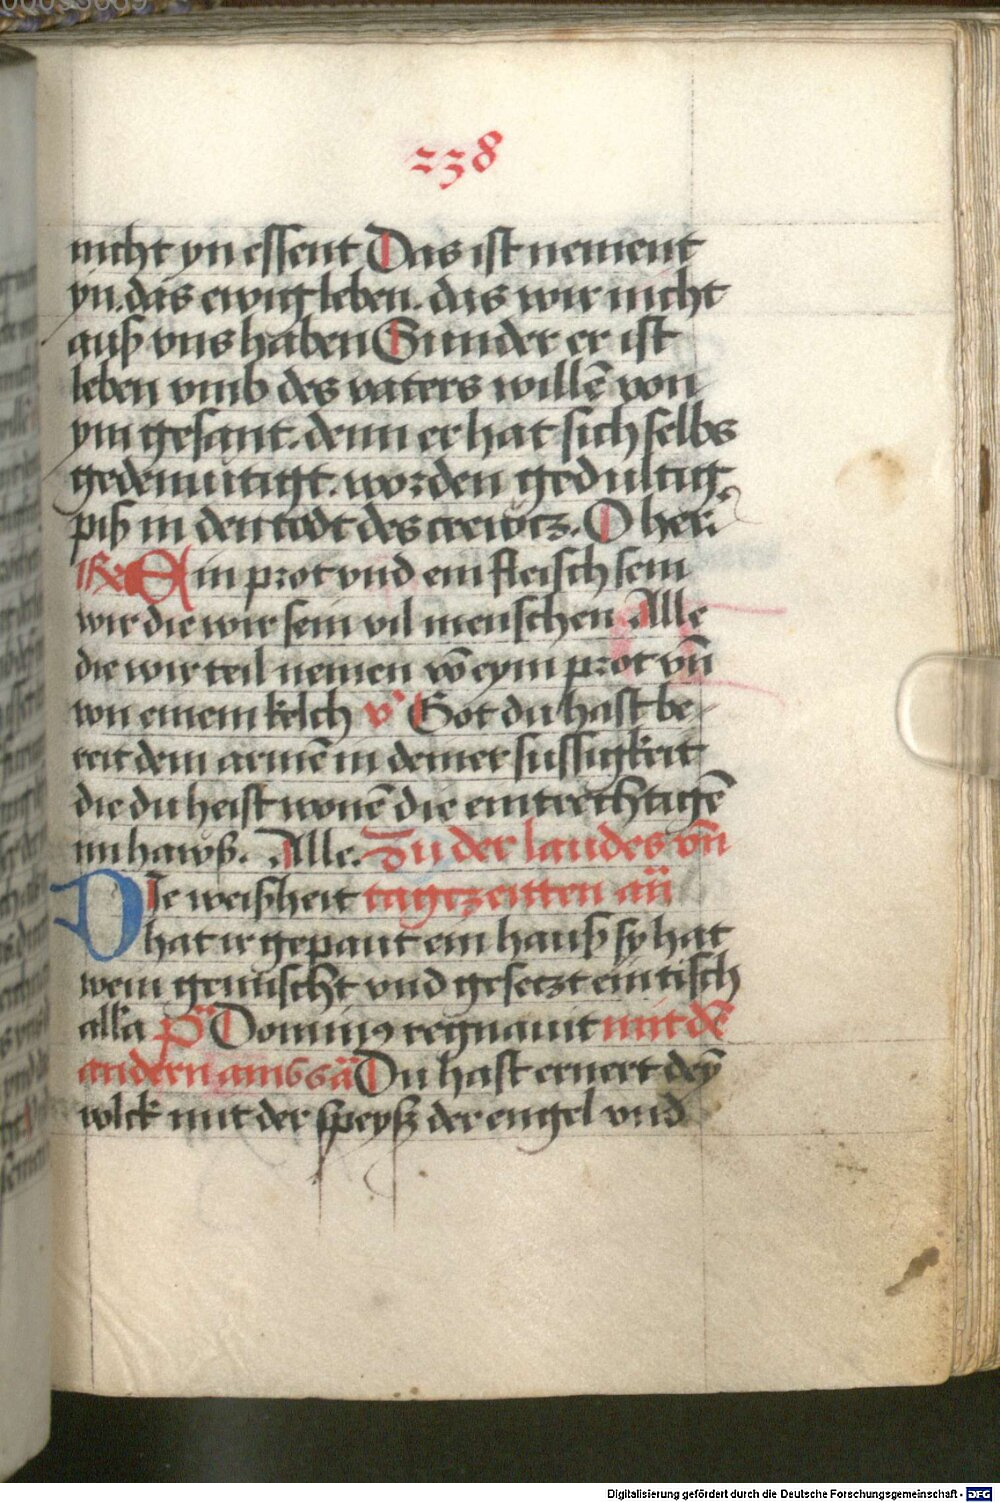 238
nicht yn essent Das ist nement
yn. das ewig leben. das wir nicht
auß vns haben Sunder er ist
leben vmb des vaters willē von
ym gesant. denn er hat sich selbs
gedemütigt. worden gedultig
piß in den todt des crewtz. O her.
Ein prot vnd ein fleisch sein
wir die wir sein vil menschen Alle
die wir teil nemen vō eym prot vn̄
von einem kelch v Got du hast be-
reit dem armē in deiner sussigkeit
die du heist wonē die eintrechtigē
im hawß. Alle. Zu der laudes vn̄
DIe weißheit tagczeitten an̄
hat ir gepaut ein hauß sy hat
wein gemischt vnd gesetzt ein tisch
alla Dominꝯ regnauit mit dē
andern Du hast ernert dey̅
volck mit der speyß der engel vnd
Digitalisierung gefördert durch die Deutsche Forschungsgemeinschaft - DFG